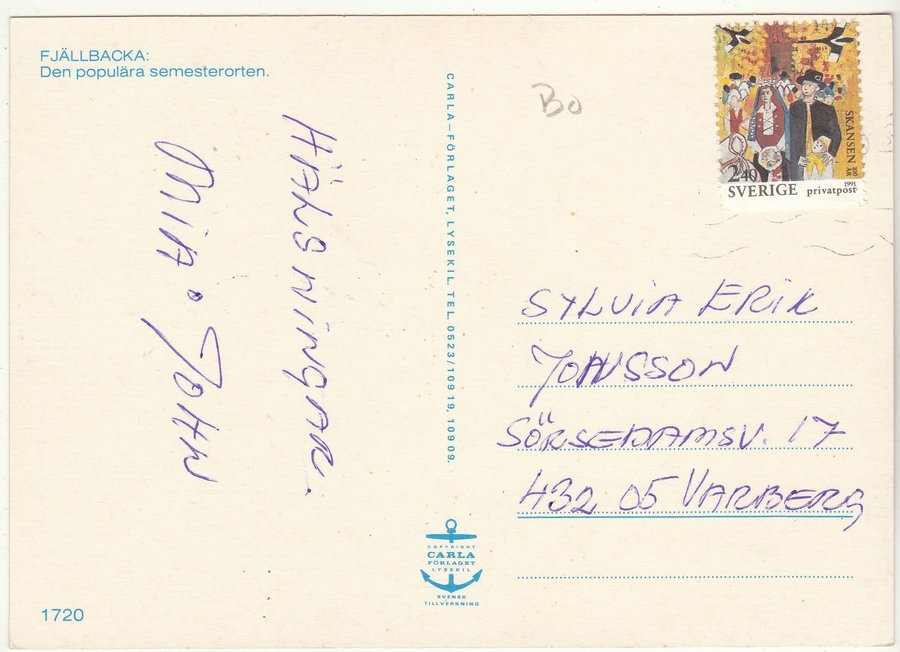 FJÄLLBACKA:
Den populära semesterorten.
HÄLSNINGAR.
MIA o JOHN
1720
CARLA-FÖRLAGET, LYSEKIL. TEL. 0523/10919, 10909.
COPYRIGHT
CARLA
FÖRLAGET
LYSEKIL
SVENSK
TILLVERKNING
Bo
SKANSEN 100 ÅR
2.40
1991
SVERIGE privatpost
SYLVIA ERIK
JOHNSSON
SÖRSEDAMSV. 17
432 05 VARBERG